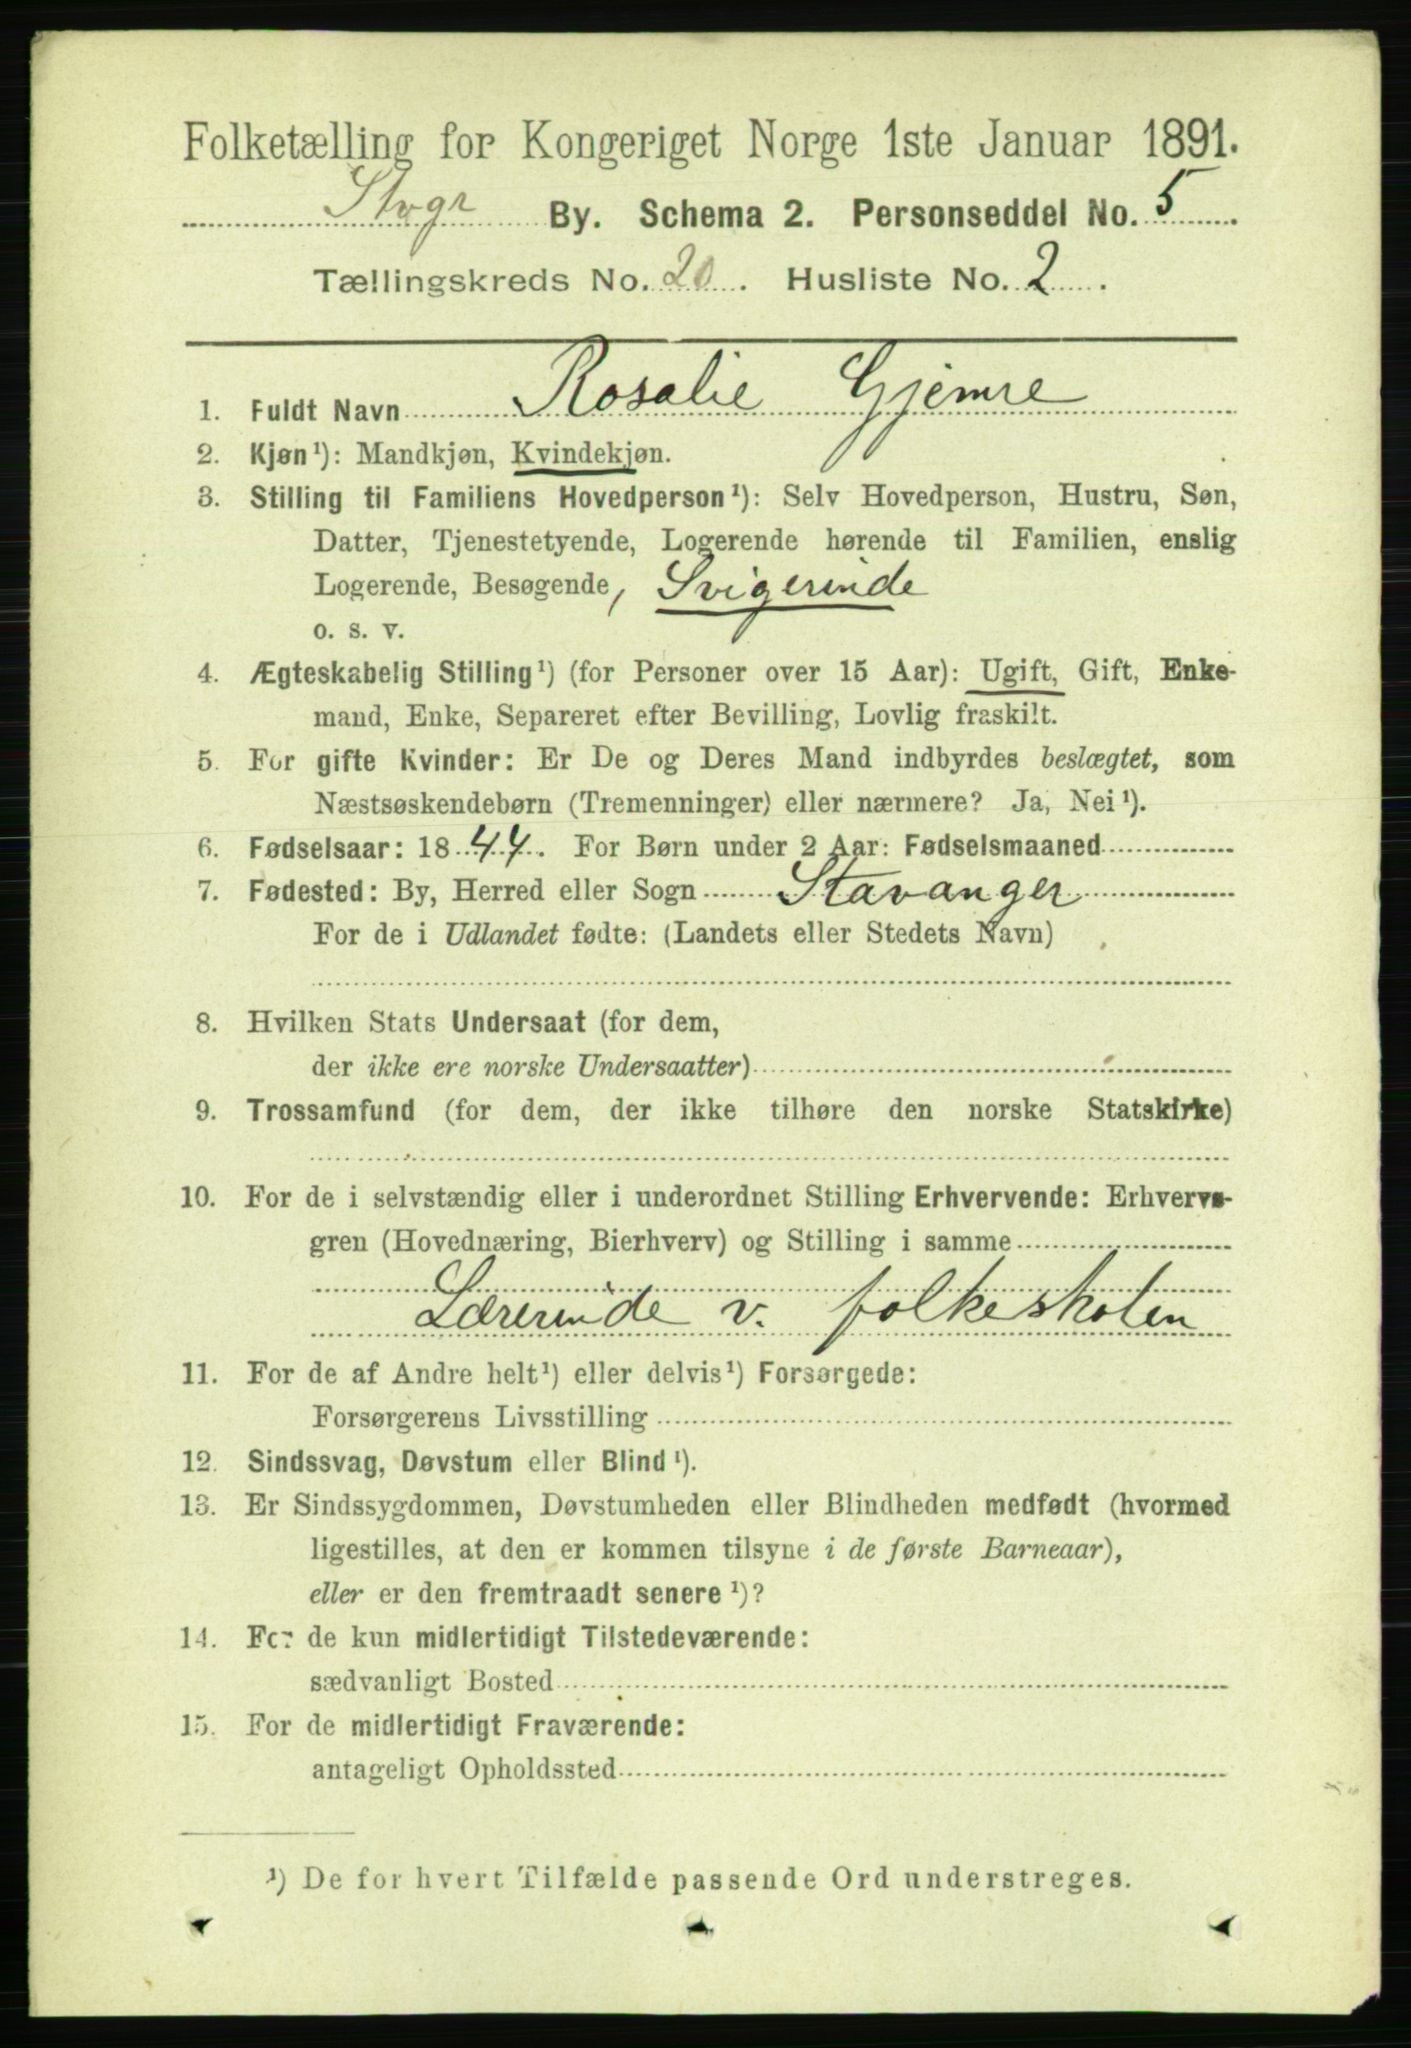 Folketælling for Kongeriget Norge 1ste Januar 1891.
Stvgr By. Schema 2. Personseddel No. 5
Tællingskreds No. 20. Husliste No. 2.
1. Fuldt Navn Rosalie Gjemre
2. Kjøn¹): Mandkjøn, Kvindekjøn.
3. Stilling til Familiens Hovedperson¹): Selv Hovedperson, Hustru, Søn,
Datter, Tjenestetyende, Logerende hørende til Familien, enslig
Logerende, Besøgende, Svigerinde
o. s. v.
4. Ægteskabelig Stilling¹) (for Personer over 15 Aar): Ugift, Gift, Enke-
mand, Enke, Separeret efter Bevilling, Lovlig fraskilt.
5. For gifte Kvinder: Er De og Deres Mand indbyrdes beslægtet, som
Næstsøskendebørn (Tremenninger) eller nærmere? Ja, Nei¹).
6. Fødselsaar: 1844. For Børn under 2 Aar: Fødselsmaaned
7. Fødested: By, Herred eller Sogn Stavanger
For de i Udlandet fødte: (Landets eller Stedets Navn)
8. Hvilken Stats Undersaat (for dem,
der ikke ere norske Undersaatter)
9. Trossamfund (for dem, der ikke tilhøre den norske Statskirke)
10. For de i selvstændig eller i underordnet Stilling Erhvervende: Erhvervs-
gren (Hovednæring, Bierhverv) og Stilling i samme
Lærerinde v. folkeskolen
11. For de af Andre helt¹) eller delvis¹) Forsørgede:
Forsørgerens Livsstilling
12. Sindssvag, Døvstum eller Blind¹).
13. Er Sindssygdommen, Døvstumheden eller Blindheden medfødt (hvormed
ligestilles, at den er kommen tilsyne i de første Barneaar),
eller er den fremtraadt senere¹)?
14. For de kun midlertidigt Tilstedeværende:
sædvanligt Bosted
15. For de midlertidigt Fraværende:
antageligt Opholdssted
¹) De for hvert Tilfælde passende Ord understreges.